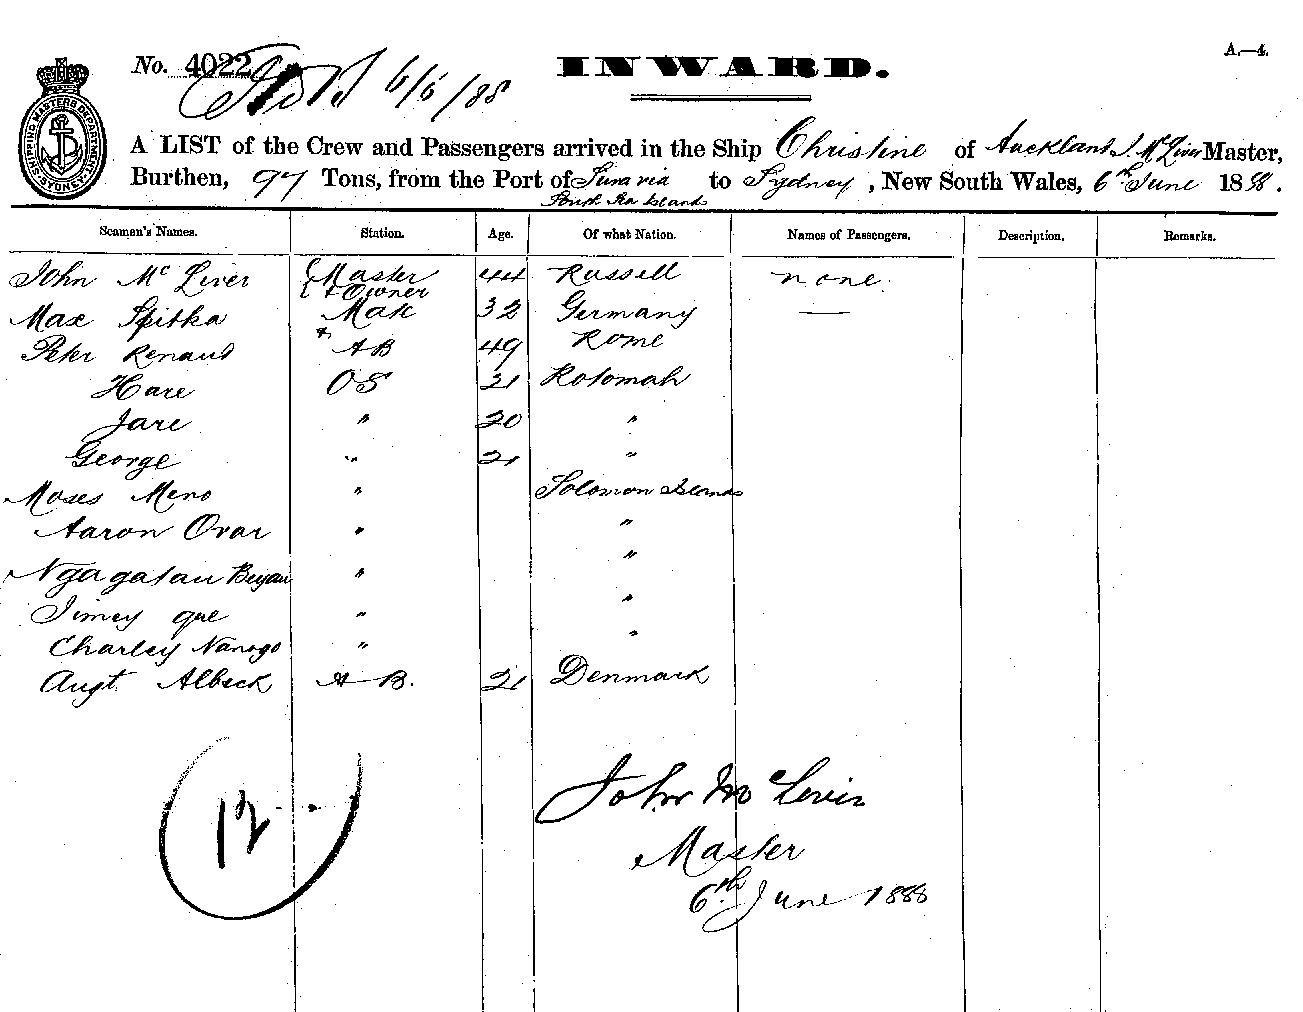 A.—4.
No. 4022 6/6/88
INWARD.
SHIPPING MASTERS DEPARTMENT SYDNEY
A LIST of the Crew and Passengers arrived in the Ship Christine of Auckland J. Mc Liver Master,
Burthen, 97 Tons, from the Port of via to Sydney, New South Wales, 6th June 1888.
South Sea Islands
Seamen's Names. Station. Age. Of what Nation. Names of Passengers. Description. Remarks.
John Mc Liver Master 44 Russell none
& Owner
Max Spitka Mate 32 Germany —
Peter Renaud AB 49 Rome
Hare OS 21 Rotomah
Jare " 20 "
George " 21 "
Moses Meno " Solomon Islands
Aaron Ovar " "
Ngagatau " "
Jimey que " "
Charley Nanogo " "
Augt. Albeck A B. 21 Denmark
12
John Mc Liver
Master
6th June 1888